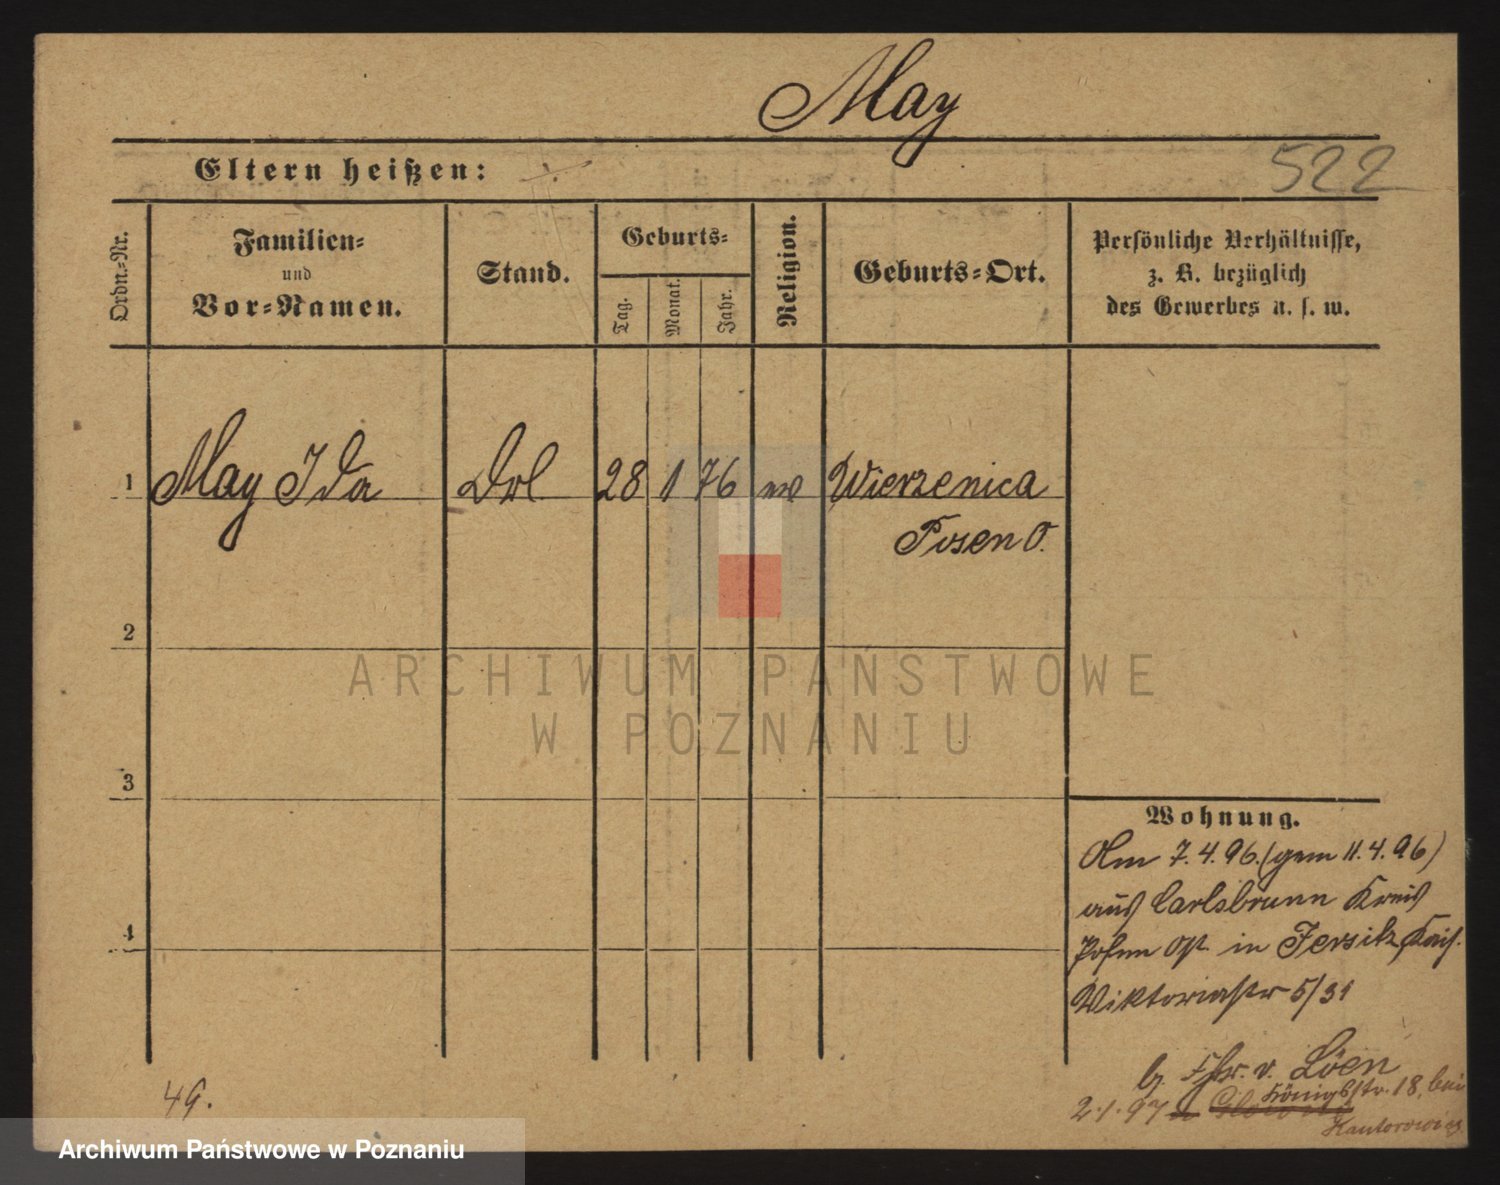 May
Eltern heißen:
522
Ordn.-Nr.
Familien-
und
Vor-Namen.
Stand.
Geburts-
Tag.
Monat.
Jahr.
Religion.
Geburts-Ort.
Persönliche Verhältnisse,
z. B. bezüglich
des Gewerbes u. s. w.
1 May Ida 28 1 76 ev Wierzenica
Posen O.
2
3
4
ARCHIWUM PAŃSTWOWE
W POZNANIU
Wohnung.
Am 7.4.96. (gem 11.4.96)
aus Carlsbrunn Kreis
Posen Ost in Jersitz, Kais.
Viktoriastr 5/31
b. Fhr. v. Löen
Königstr. 18, bei
2.1.97
Kantorowicz
49.
Archiwum Państwowe w Poznaniu